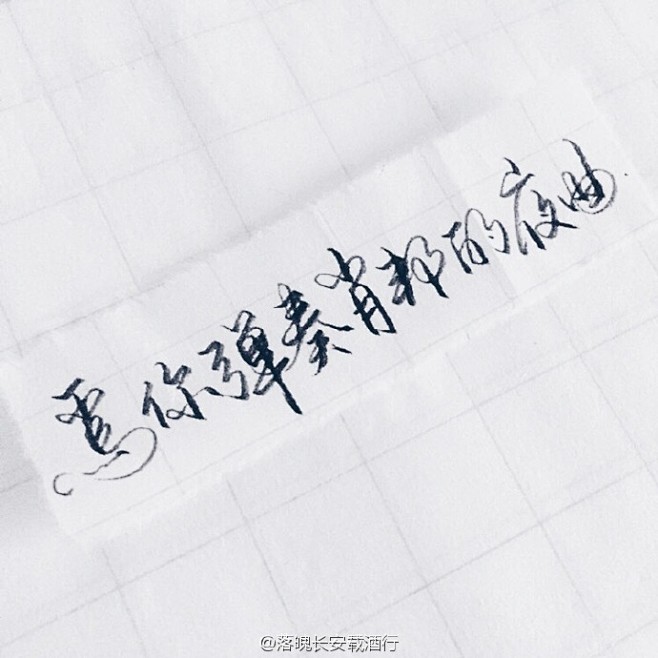 為你弹奏肖邦的夜曲
@落魄长安载酒行